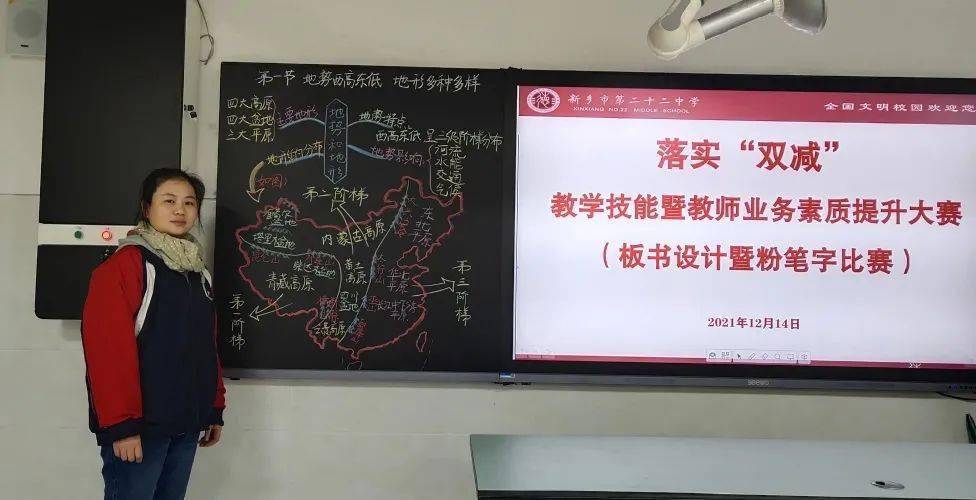 第一节 地势西高东低 地形多种多样
四大高原
四大盆地
三大平原
主要地形
地形的分布
(如图)
地势和地形
地势特点
西高东低 呈三级阶梯分布
地势影响
河流
水能
交通
气候
第二阶梯
内蒙古高原
准噶尔盆地
塔里木盆地
柴达木盆地
青藏高原
黄土高原
四川盆地
云贵高原
东北平原
华北平原
长江中下游平原
第一阶梯
第三阶梯
新乡市第二十二中学
XINXIANG NO.22 MIDDLE SCHOOL
全国文明校园欢迎您
落实“双减”
教学技能暨教师业务素质提升大赛
(板书设计暨粉笔字比赛)
2021年12月14日
seewo